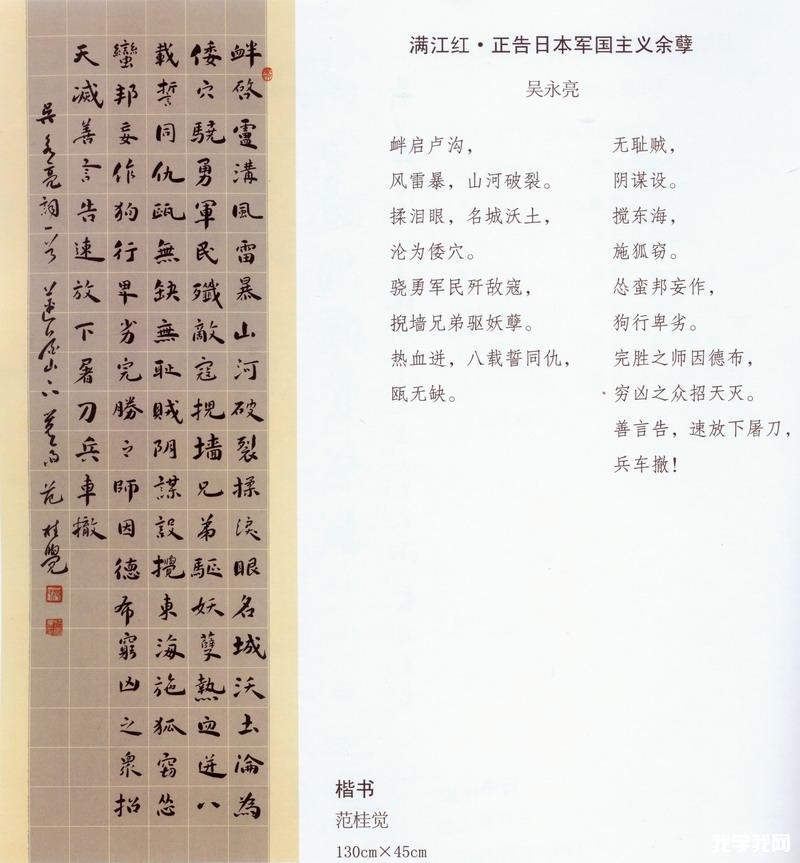 衅啓盧溝風雷暴山河破裂揉淚眼名城沃土淪為
倭穴驍勇軍民殲敵寇掜墙兄弟驅妖孽熱血迸八
載誓同仇瓯無缺無耻賊阴謀設攪東海施狐窃怂
蠻邦妄作狗行卑劣完勝之師因德布窮凶之衆招
天滅善言告速放下屠刀兵車撤
吴永亮詞一首 范桂覺
满江红·正告日本军国主义余孽
吴永亮
衅启卢沟，
风雷暴，山河破裂。
揉泪眼，名城沃土，
沦为倭穴。
骁勇军民歼敌寇，
掜墙兄弟驱妖孽。
热血迸，八载誓同仇，
瓯无缺。
无耻贼，
阴谋设。
搅东海，
施狐窃。
怂蛮邦妄作，
狗行卑劣。
完胜之师因德布，
穷凶之众招天灭。
善言告，速放下屠刀，
兵车撤！
楷书
范桂觉
130cm×45cm
我学我网